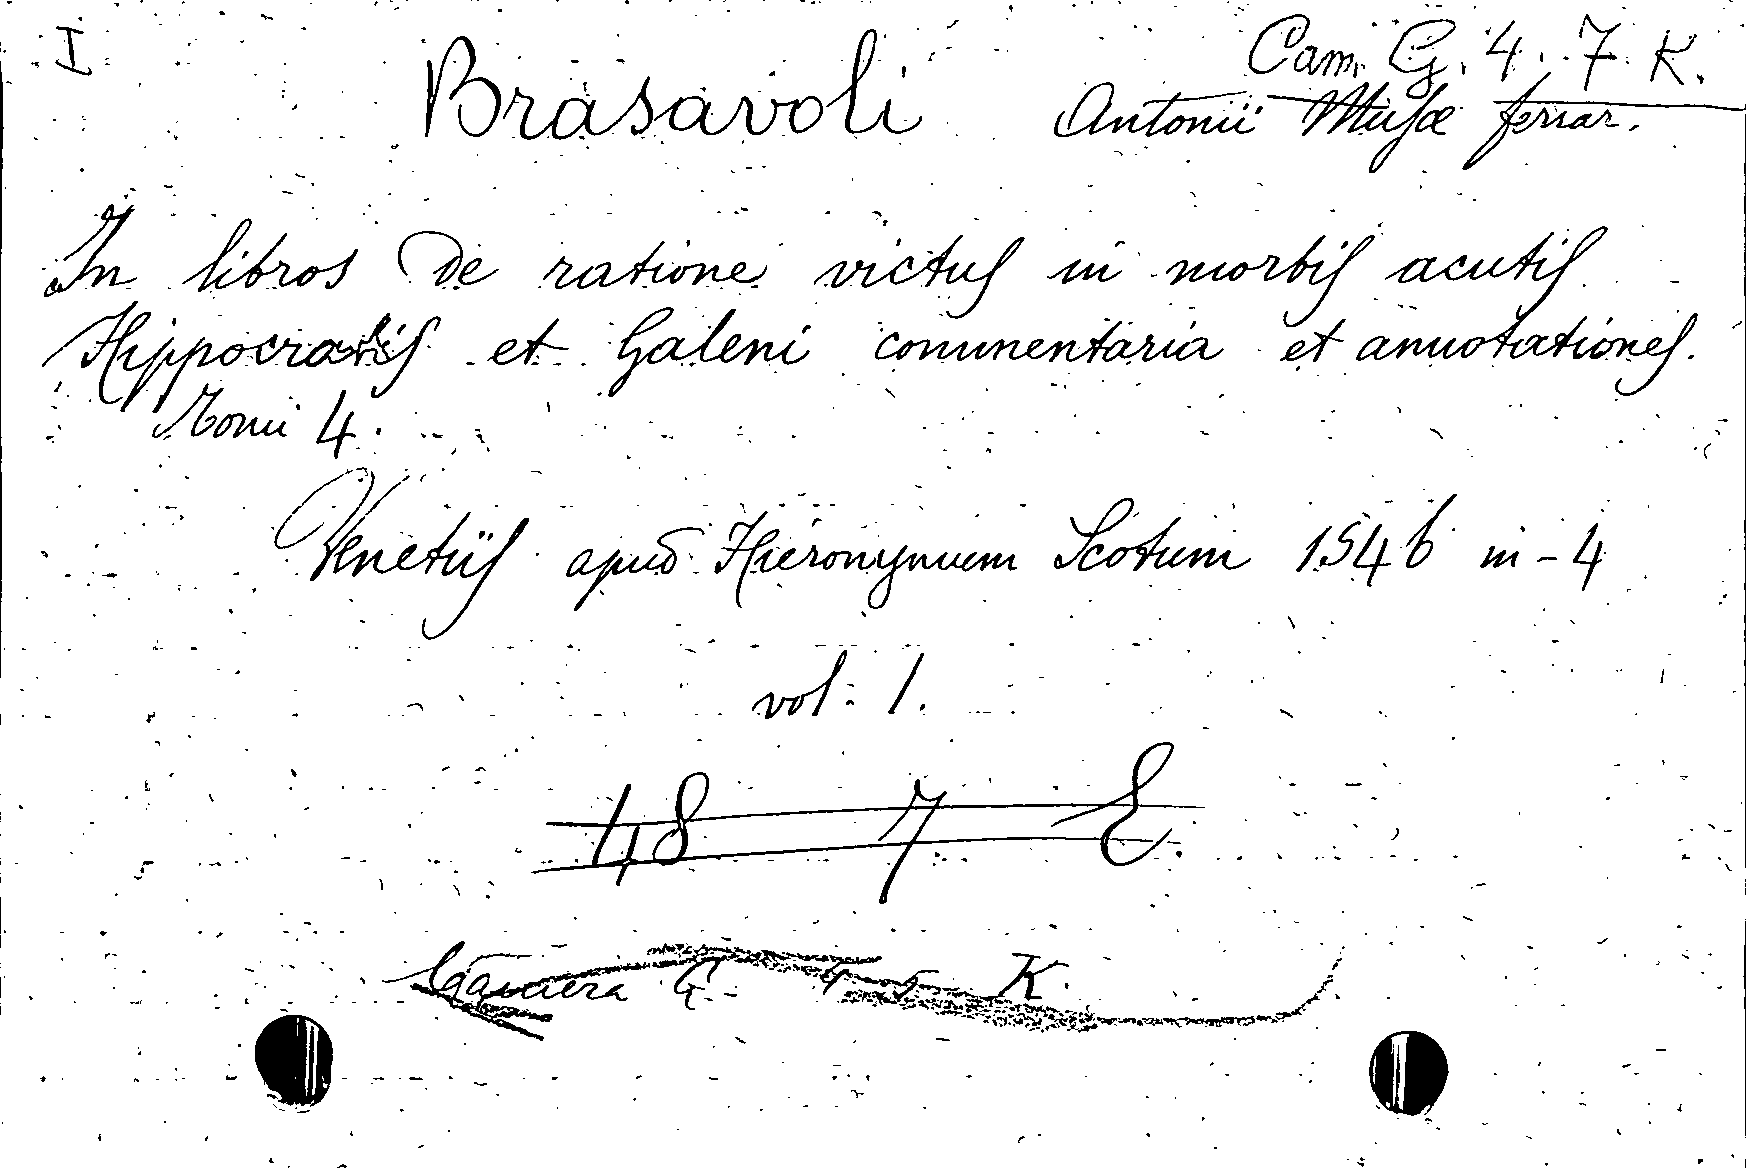 I
Cam. G. 4. 7 K.
Brasavoli Antonii Musæ ferrar.
In libros de ratione victus in morbis acutis
Hippocratis et Galeni commentaria et annotationes.
Tomi 4.
Venetiis apud Hieronymum Scotum 1546 in-4
vol. 1.
48 7 E.
Camera G. 4 5 K.